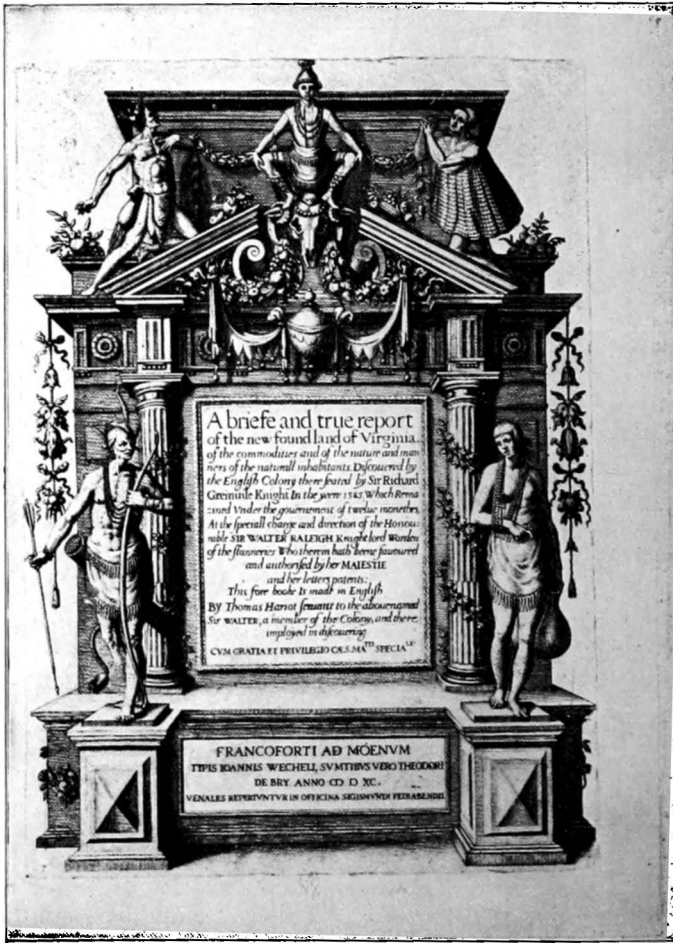 A briefe and true report
of the new found land of Virginia.
of the commodities and of the nature and man
ners of the naturall inhabitants. Discouered by
the English Colony there seated by Sir Richard
Greinuile Knight In the yeere 1585. Which Rema
ined Vnder the gouernement of twelue monethes,
At the speciall charge and direction of the Honou-
rable SIR WALTER RALEIGH Knight lord Warden
of the stanneries Who therein hath beene fauoured
and authorised by her MAIESTIE
and her letters patents:
This fore booke Is made in English
By Thomas Hariot seruant to the abouenamed
Sir WALTER, a member of the Colony, and there
imployed in discouering
CVM GRATIA ET PRIVILEGIO CÆS. MA TIS SPECIA LI
FRANCOFORTI AD MOENVM
TYPIS IOANNIS WECHELI, SVMTIBVS VERO THEODORI
DE BRY ANNO CIƆ IƆ XC.
VENALES REPERIVNTVR IN OFFICINA SIGISMVNDI FEIRABENDII